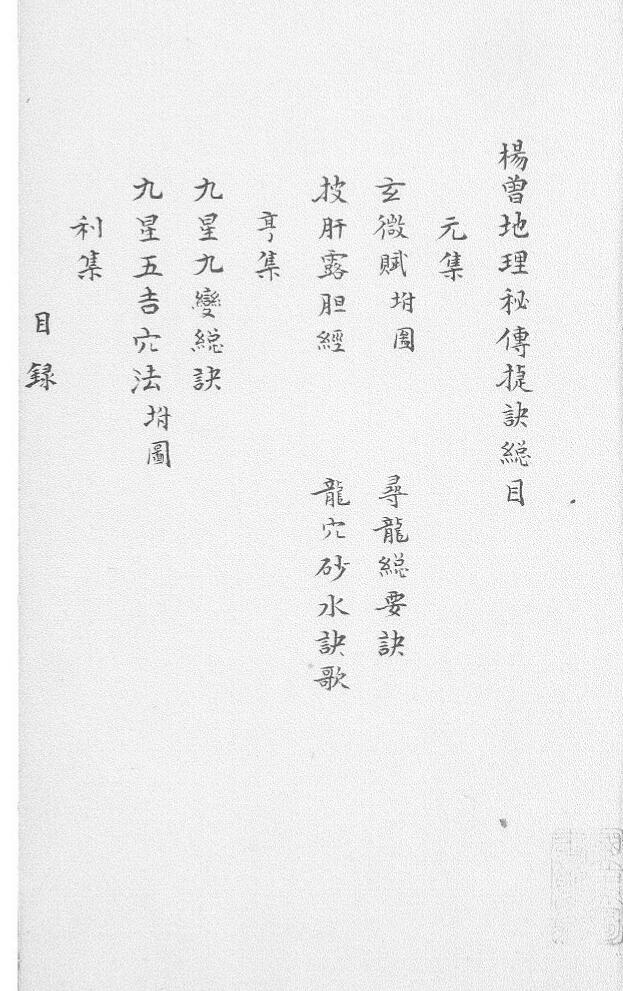 楊曾地理秘傳㨗訣緫目
元集
玄微賦 坿圖 尋龍緫要訣
披肝露胆經 龍穴砂水訣歌
亨集
九星九變緫訣
九星五吉穴法 坿圖
利集
目録